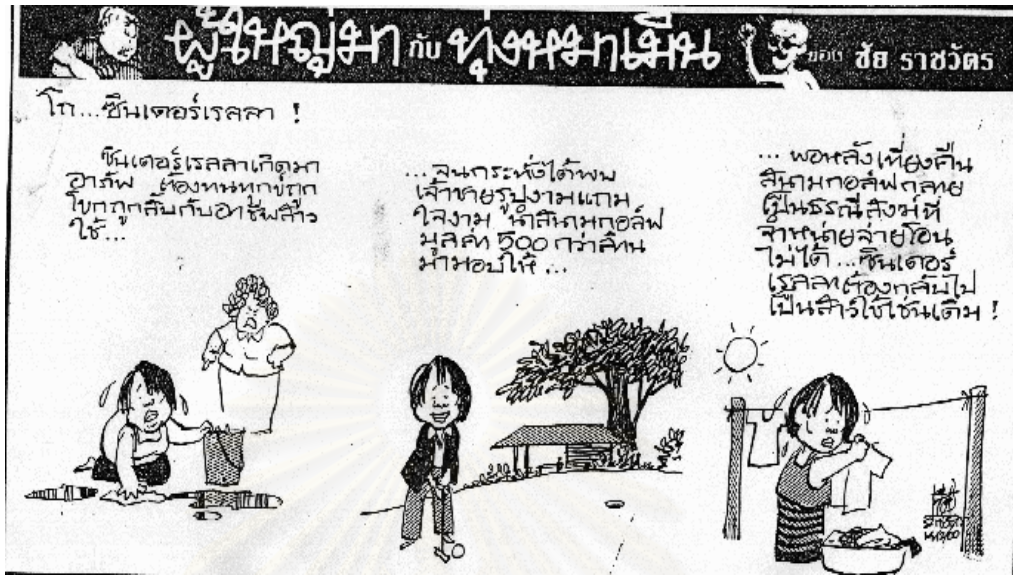 ผู้ใหญ่มา กับ ทุ่งหมาเมิน
ของ ชัย ราชวัตร
โถ...ซินเดอร์เรลลา !
ซินเดอร์เรลลาเกิดมา
อาภัพ ต้องทนทุกข์ถูก
โขกถูกสับกับอาชีพสาว
ใช้...
...จนกระทั่งได้พบ
เจ้าชายรูปงามแถม
ใจงาม นำสนามกอล์ฟ
มูลค่า 500 กว่าล้าน
มามอบให้ ...
... พอหลังเที่ยงคืน
สนามกอล์ฟกลาย
เป็นธรณีสงฆ์ที่
จำหน่ายจ่ายโอน
ไม่ได้ ...ซินเดอร์
เรลลาต้องกลับไป
เป็นสาวใช้เช่นเดิม !